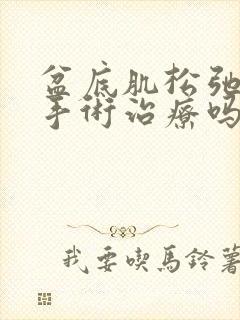 盆底肌松弛
手術治療吗
我要喫馬鈴薯